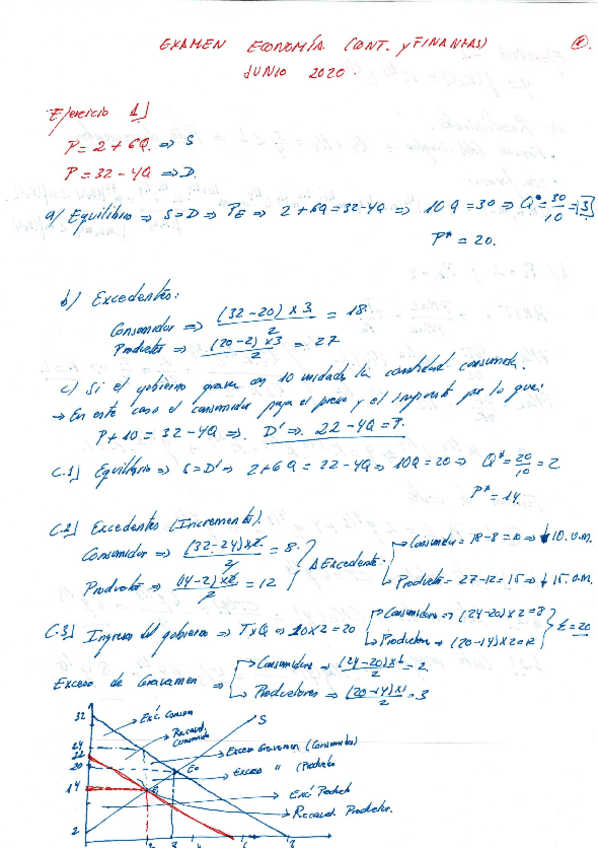 EXAMEN ECONOMÍA (CONT. y FINANZAS) 1.
JUNIO 2020.
Ejercicio 1)
P = 2 + 6Q. ⇒ S
P = 32 - 4Q ⇒ D.
a) Equilibrio ⇒ S = D ⇒ PE ⇒ 2 + 6Q = 32 - 4Q ⇒ 10Q = 30 ⇒ Q* = 30/10 = 3
P* = 20.
b) Excedentes:
Consumidor ⇒ (32-20) x 3 / 2 = 18.
Productor ⇒ (20-2) x 3 / 2 = 27
c) Si el gobierno grava en 10 unidades la cantidad consumida.
→ En este caso el consumidor paga el precio y el impuesto por lo que:
P + 10 = 32 - 4Q ⇒ D' ⇒ 22 - 4Q = P.
C.1) Equilibrio ⇒ S = D' ⇒ 2 + 6Q = 22 - 4Q ⇒ 10Q = 20 ⇒ Q* = 20/10 = 2
P* = 14.
C.2) Excedentes (Incremento).
Consumidor ⇒ (32-24) x 2 / 2 = 8. Δ Excedente: → Consumidor = 18 - 8 = 10 ⇒ ↓ 10. u.m.
Productor ⇒ (14-2) x 2 / 2 = 12 → Productor = 27 - 12 = 15 ⇒ ↓ 15. u.m.
C.3) Ingreso del gobierno ⇒ T x Q ⇒ 10 x 2 = 20 → Consumidores ⇒ (24-20) x 2 = 8
→ Productor ⇒ (20-14) x 2 = 12 Σ = 20
Exceso de Gravamen ⇒ → Consumidores ⇒ (24-20) x 1 / 2 = 2
→ Productores ⇒ (20-14) x 1 / 2 = 3
32 Exc. Consum S
Recaud. Consumidor
24 Exceso Gravamen (Consumidor)
22
20 E0 Exceso " (Productor
14 E1 Exc. Product
Recaud. Productor.
2
2 3 4 6 8